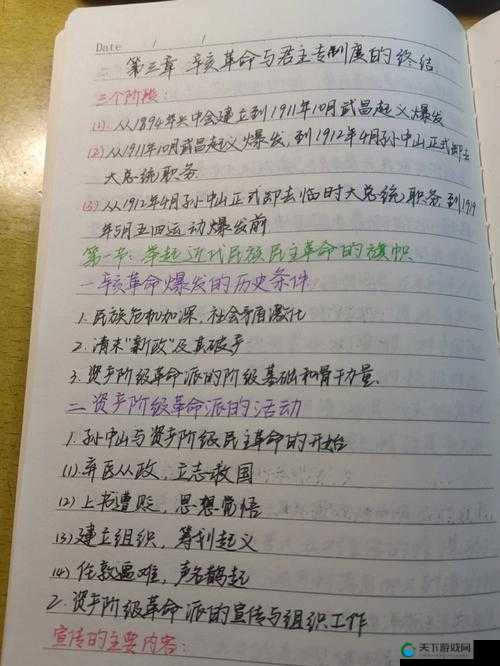 Date / /
第三章 辛亥革命与君主专制度的终结.
三个阶段:
(1). 从1894年兴中会建立到1911年10月武昌起义爆发
(2) 从1911年10月武昌起义爆发, 到1912年4月孙中山正式卸去
大总统职务
(3) 从1912年4月孙中山正式卸去临时大总统职务到1919
年5月五四运动爆发前
第一节: 举起近代民族民主革命的旗帜
一 辛亥革命爆发的历史条件
1. 民族危机加深, 社会矛盾激化
2. 清末"新政"及其破产
3. 资产阶级革命派的阶级基础和骨干力量.
二 资产阶级革命派的活动
1. 孙中山与资产阶级民主革命的开始
(1) 弃医从政, 立志救国
(2) 上书遭贬, 思想觉悟
(3) 建立组织, 筹划起义
(4) 伦敦遇难, 声名鹊起
2. 资产阶级革命派的宣传与组织工作
宣传的主要内容:
天下游戏网